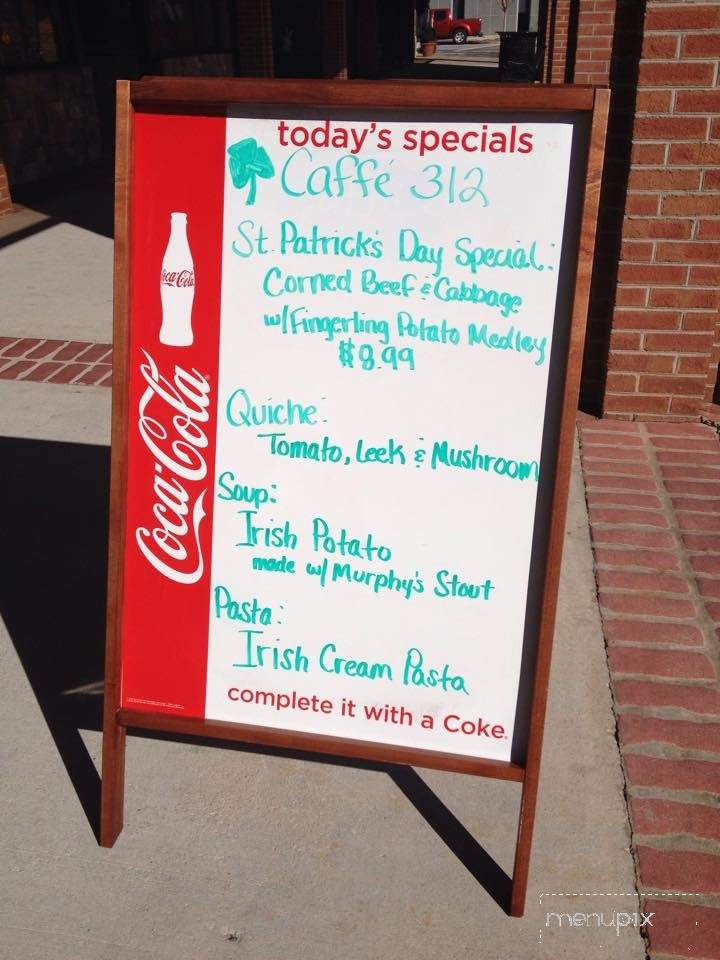 today's specials
Caffé 312
St. Patrick's Day Special:
Corned Beef & Cabbage
w/ Fingerling Potato Medley
$8.99
Quiche:
Tomato, Leek & Mushroom
Soup:
Irish Potato
made w/ Murphy's Stout
Pasta:
Irish Cream Pasta
complete it with a Coke.
Coca-Cola
Coca-Cola
menupix